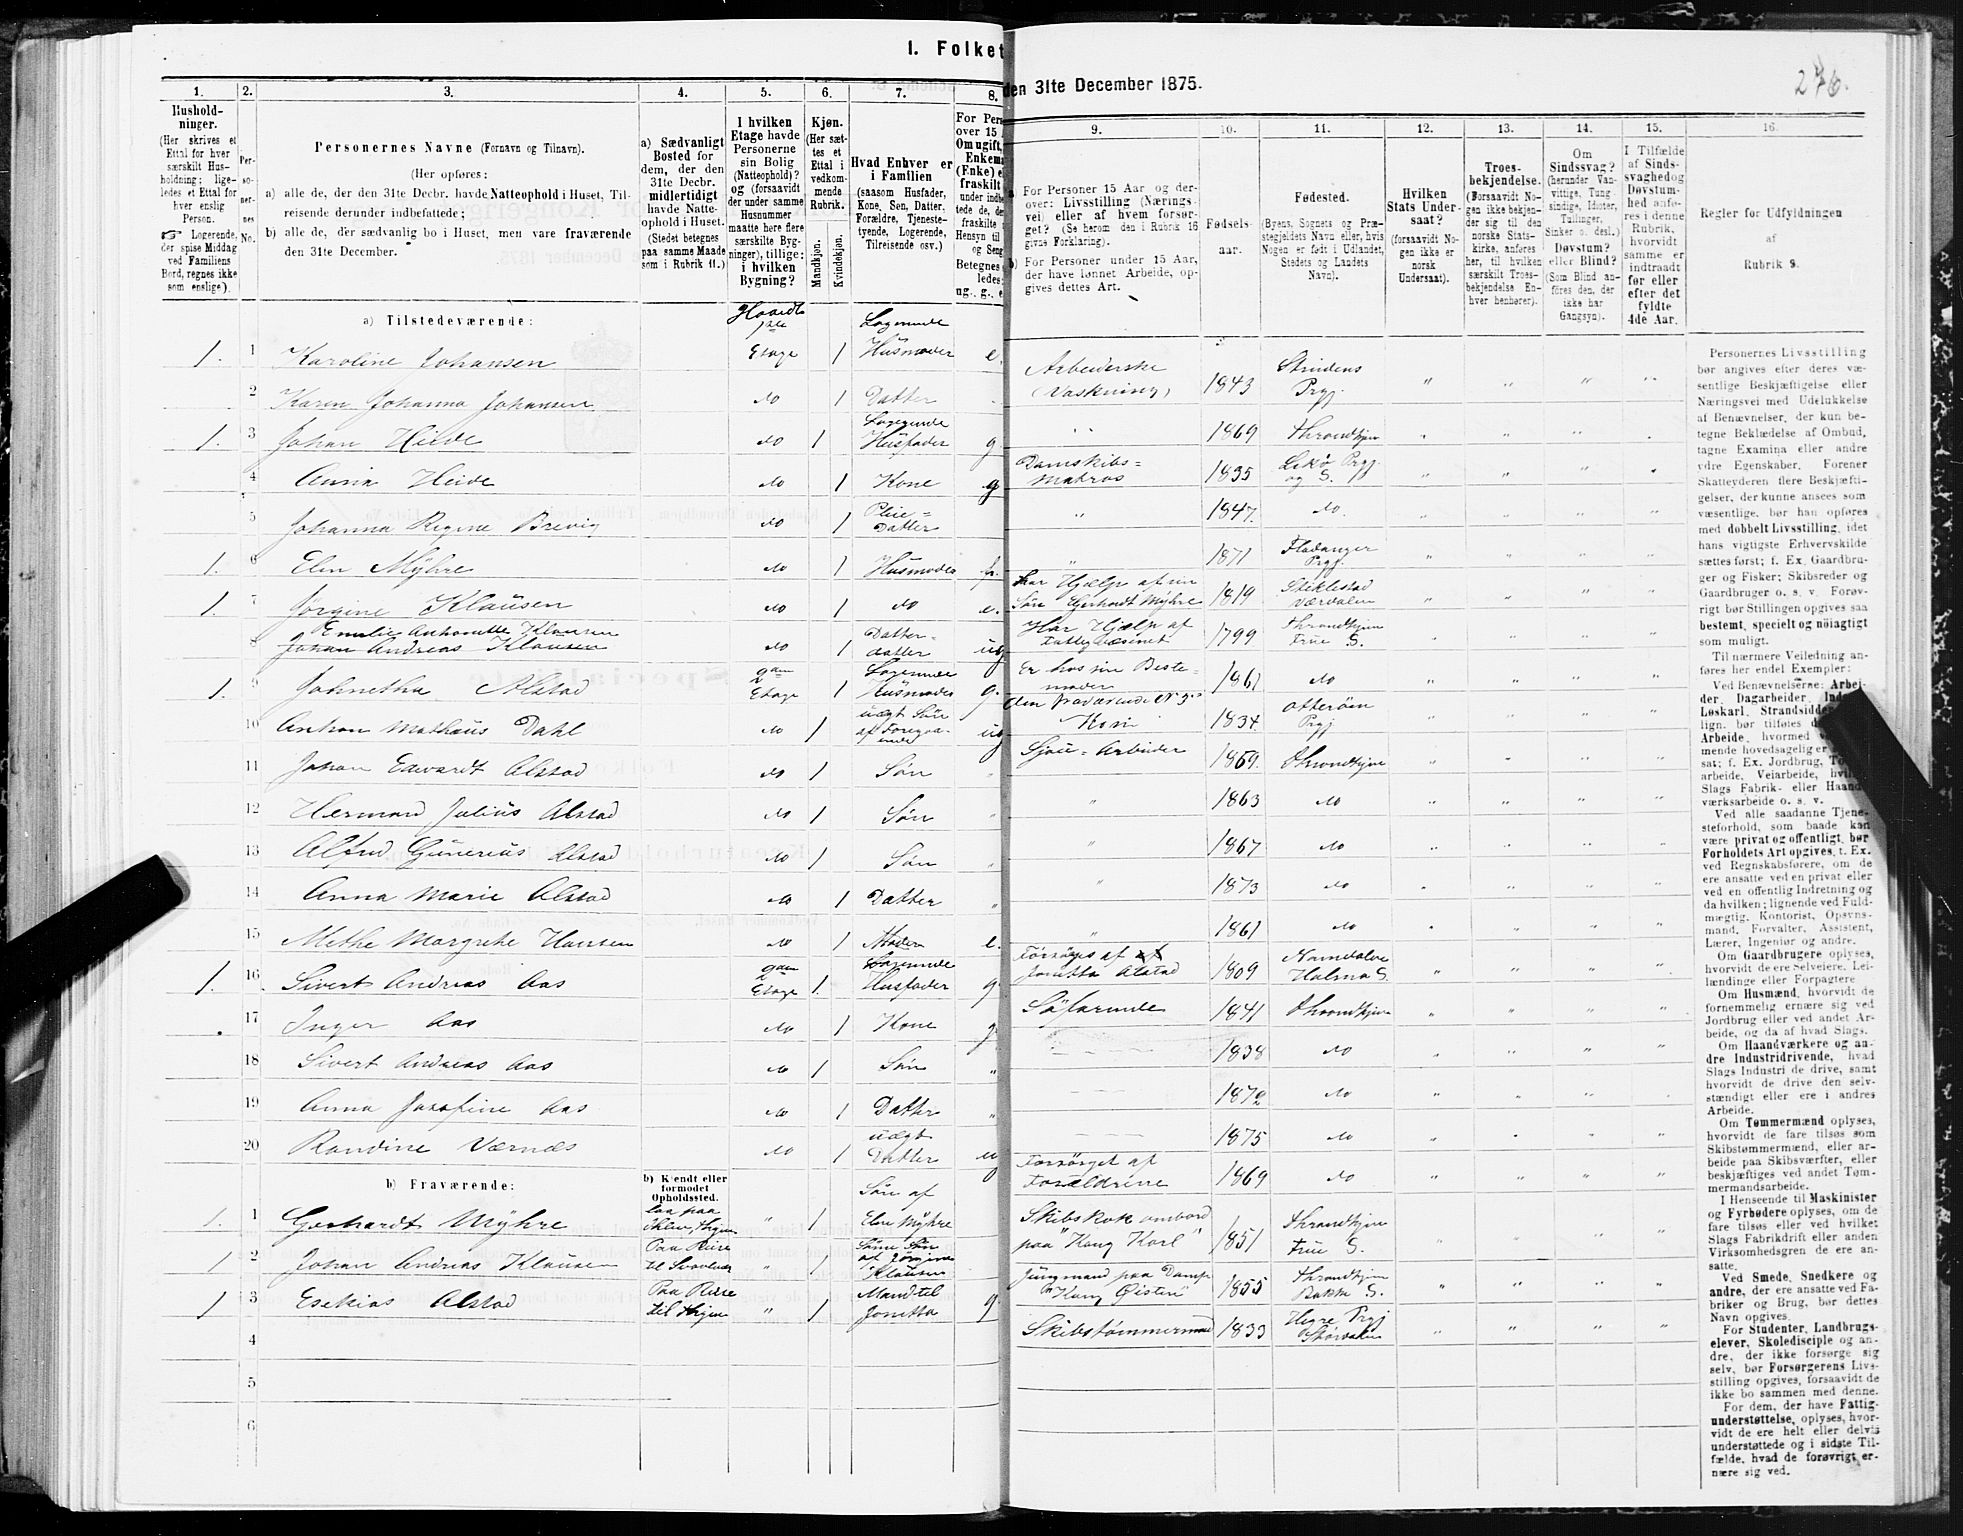 I. Folket
den 31te December 1875.
276.
1.
2.
3.
4.
5.
6.
7.
8.
9.
10.
11.
12.
13.
14.
15.
16.
Hushold-
ninger.
(Her skrives et
Ettal for hver
særskilt Hus-
holdning; lige-
ledes et Ettal for
hver enslig
Person.
☞ Logerende,
der spise Middag
ved Familiens
Bord, regnes ikke
som enslige).
Per-
so-
ner-
nes
No.
Personernes Navne (Fornavn og Tilnavn).
(Her opføres:
a) alle de, der den 31te Decbr. havde Natteophold i Huset, Til-
reisende derunder indbefattede;
b) alle de, der sædvanlig bo i Huset, men vare fraværende
den 31te December.
a) Sædvanligt
Bosted for
dem, der den
31te Decbr.
midlertidigt
havde Natte-
ophold i Huset.
(Stedet betegnes
paa samme Maade
som i Rubrik 11.)
I hvilken
Etage havde
Personerne
sin Bolig
(Natteophold)?
og (forsaavidt
der under samme
Husnummer
maatte være flere
særskilte Byg-
ninger), tillige:
i hvilken
Bygning?
Kjøn.
(Her sæt-
tes et
Ettal i
vedkom-
mende
Rubrik.
Mandkjøn.
Kvindekjøn.
Hvad Enhver er
i Familien
(saasom Husfader,
Kone, Søn, Datter,
Forældre, Tjeneste-
tyende, Logerende,
Tilreisende osv.)
For Pers
over 15
Om ugift,
Enkema
(Enke) e
fraskilt
a) For Personer 15 Aar og der-
over: Livsstilling (Nærings-
vei) eller af hvem forsør-
get? (Se herom den i Rubrik 16
givne Forklaring).
b) For Personer under 15 Aar,
der have lønnet Arbeide, op-
gives dettes Art.
Fødsels-
aar.
Fødested.
(Byens, Sognets og Præ-
stegjeldets Navn eller, hvis
Nogen er født i Udlandet,
Stedets og Landets
Navn).
Hvilken
Stats Under-
saat?
(forsaavidt No-
gen ikke er
norsk
Undersaat).
Troes-
bekjendelse.
(Forsaavidt No-
gen ikke bekjen-
der sig til den
norske Stats-
kirke, anføres
her, til hvilken
særskilt Troes-
bekjendelse En-
hver henhører).
Om
Sindssvag?
(herunder Van-
vittige, Tung-
sindige, Idioter,
Tullinger,
Sinker o. desl.)
Døvstum?
eller Blind?
(Som Blind an-
føres den, der
ikke har
Gangsyn).
I Tilfælde
af Sinds-
svaghed og
Døvstum-
hed anfø-
res i denne
Rubrik,
hvorvidt
samme er
indtraadt
før eller
efter det
fyldte
4de Aar.
Regler for Udfyldningen
af
Rubrik 9.
a) Tilstedeværende:
1. 1 Karoline Johansen Etage 1 Logerende Husmoder e. Arbeiderske (Vaskning) 1843 Strindens Prgj.
2 Karen Johanna Johansen do 1 Datter 1869 Throndhjem
1. 3 Johan Heide do 1 Logerende Husfader g. Damskibs= matros 1835 Lekø Prgj. og S.
4 Anna Heide do 1 Kone g 1847. do.
5 Johanna Regine Brevig do 1 Pleie= Datter 1871 Fladanger Prgj.
1. 6 Elen Mÿhre do 1 Husmoder fr. har Hjælp af sin Søn Gerhardt Mÿhre 1819 Stiklestad Værdalen
1. 7 Jørgine Klausen do 1 do e. Har Hjælp af Fattigvæsenet 1799 Throndhjem Frue S.
8 Emilie Antonette Klausen
Johan Andreas Klausen do 1 Datter- datter ug Er hos sin Beste- moder 1861 do
1. 9 Johnetha Alstad 2den Etage 1 Logerende Husmoder g. den fraværende No 3s Kone 1834. Otterøen Prgj.
10 Anton Mathæus Dahl do 1 uægt Søn af Foregaa- ende ug Sjou=Arbeider 1859. Throndhjem
11 Johan Edvardt Alstad do 1 Søn 1863 do
12 Herman Julius Alstad do 1 Søn 1867 do
13 Alfred Gunerius Alstad do 1 Søn 1873 do
14 Anna Marie Alstad do 1 Datter 1861 do
15 Methe Margrethe Hansen do 1 Moder e. Forsørges af Jonetta Alstad 1809 Namdalen Halmø S.
1. 16 Sivert Andreas Aas 2den Etage 1. Logerende Husfader g. Søfarende 1841 Throndhjem
17 Inger Aas do 1 Kone g. 1838 do
18 Sivert Andreas Aas do 1 Søn 1872 do
19 Anna Josefine Aas do 1 Datter 1875 do
20 Randine Værnæs do 1 uægt Datter ug Forsørget af Forældrene 1869 do
b) Fraværende:
b) Kjendt eller
formodet
Opholdssted.
1. 1 Gerhardt Mÿhre 1 Søn af Elen Mÿhre Skibskok ombord paa "Kong Karl" 1851 Throndhjem Frue S.
1 2 Johan Andreas Klausen Paa Reise 1 Søns Søn af Jørgine Klausen Jungmand paa Damp. "Kong Øistein" 1855 Throndhjem Bakke S.
1 3 Esekias Alstad Paa Reise 1 Mand til Jonetta g. Skibstømmermand 1833 Hegre Prgj Størdalen
4
5
6
Personernes Livsstilling
bør angives efter deres væ-
sentlige Beskjæftigelse eller
Næringsvei med Udelukkelse
af Benævnelser, der kun be-
tegne Beklædelse af Ombud,
tagne Examina eller andre
ydre Egenskaber. Forener
Skatteyderen flere Beskjæfti-
gelser, der kunne ansees som
væsentlige, bør han opføres
med dobbelt Livsstilling, idet
hans vigtigste Erhvervskilde
sættes først; f. Ex. Gaardbru-
ger og Fisker; Skibsreder og
Gaardbruger o. s. v. Forøv-
rigt bør Stillingen opgives saa
bestemt, specielt og nøiagtigt
som muligt.
Til nærmere Veiledning an-
føres her endel Exempler:
Ved Benævnelserne: Arbei-
der, Dagarbeider
Løskarl, Strandsidder
lign. bør tilføies
Arbeide, hvormed
mende hovedsagelig er
sat; f. Ex. Jordbrug,
arbeide, Veiarbeide,
Slags Fabrik- eller Haand-
værksarbeide o. s. v.
Ved alle saadanne Tjene-
steforhold, som baade kan
være privat og offentligt, bør
Forholdets Art opgives, t. Ex.
ved Regnskabsførere, om de
ere ansatte ved en privat eller
ved en offentlig Indretning og
da hvilken; lignende ved Fuld-
mægtig, Kontorist, Opsyns-
mand, Forvalter, Assistent,
Lærer, Ingeniør og andre.
Om Gaardbrugere oplyses,
hvorvidt de ere Selveiere, Lei-
lændinge eller Forpagtere.
Om Husmænd, hvorvidt de
fornemmelig ernære sig ved
Jordbrug eller ved andet Ar-
beide, og da af hvad Slags.
Om Haandværkere og an-
dre Industridrivende, hvad
Slags Industri de drive, samt
hvorvidt de drive den selv-
stændigt eller ere i andres
Arbeide.
Om Tømmermænd oplyses,
hvorvidt de fare tilsøs som
Skibstømmermænd, eller ar-
beide paa Skibsværfter, eller
beskjæftiges ved andet Tøm-
mermandsarbeide.
I Henseende til Maskinister
og Fyrbødere oplyses, om de
fare tilsøs eller ved hvilket
Slags Fabrikdrift eller anden
Virksomhedsgren de ere an-
satte.
Ved Smede, Snedkere og
andre, der ere ansatte ved Fa-
briker og Brug, bør dettes
Navn opgives.
For Studenter, Landbrugs-
elever, Skoledisciple og an-
dre, der ikke forsørge sig
selv, bør Forsørgerens Livs-
stilling opgives, forsaavidt de
ikke bo sammen med denne.
For dem, der have Fattig-
understøttelse, oplyses, hvor-
vidt de ere helt eller delvis
understøttede og i sidste Til-
fælde, hvad de forøvrigt er-
nære sig ved.